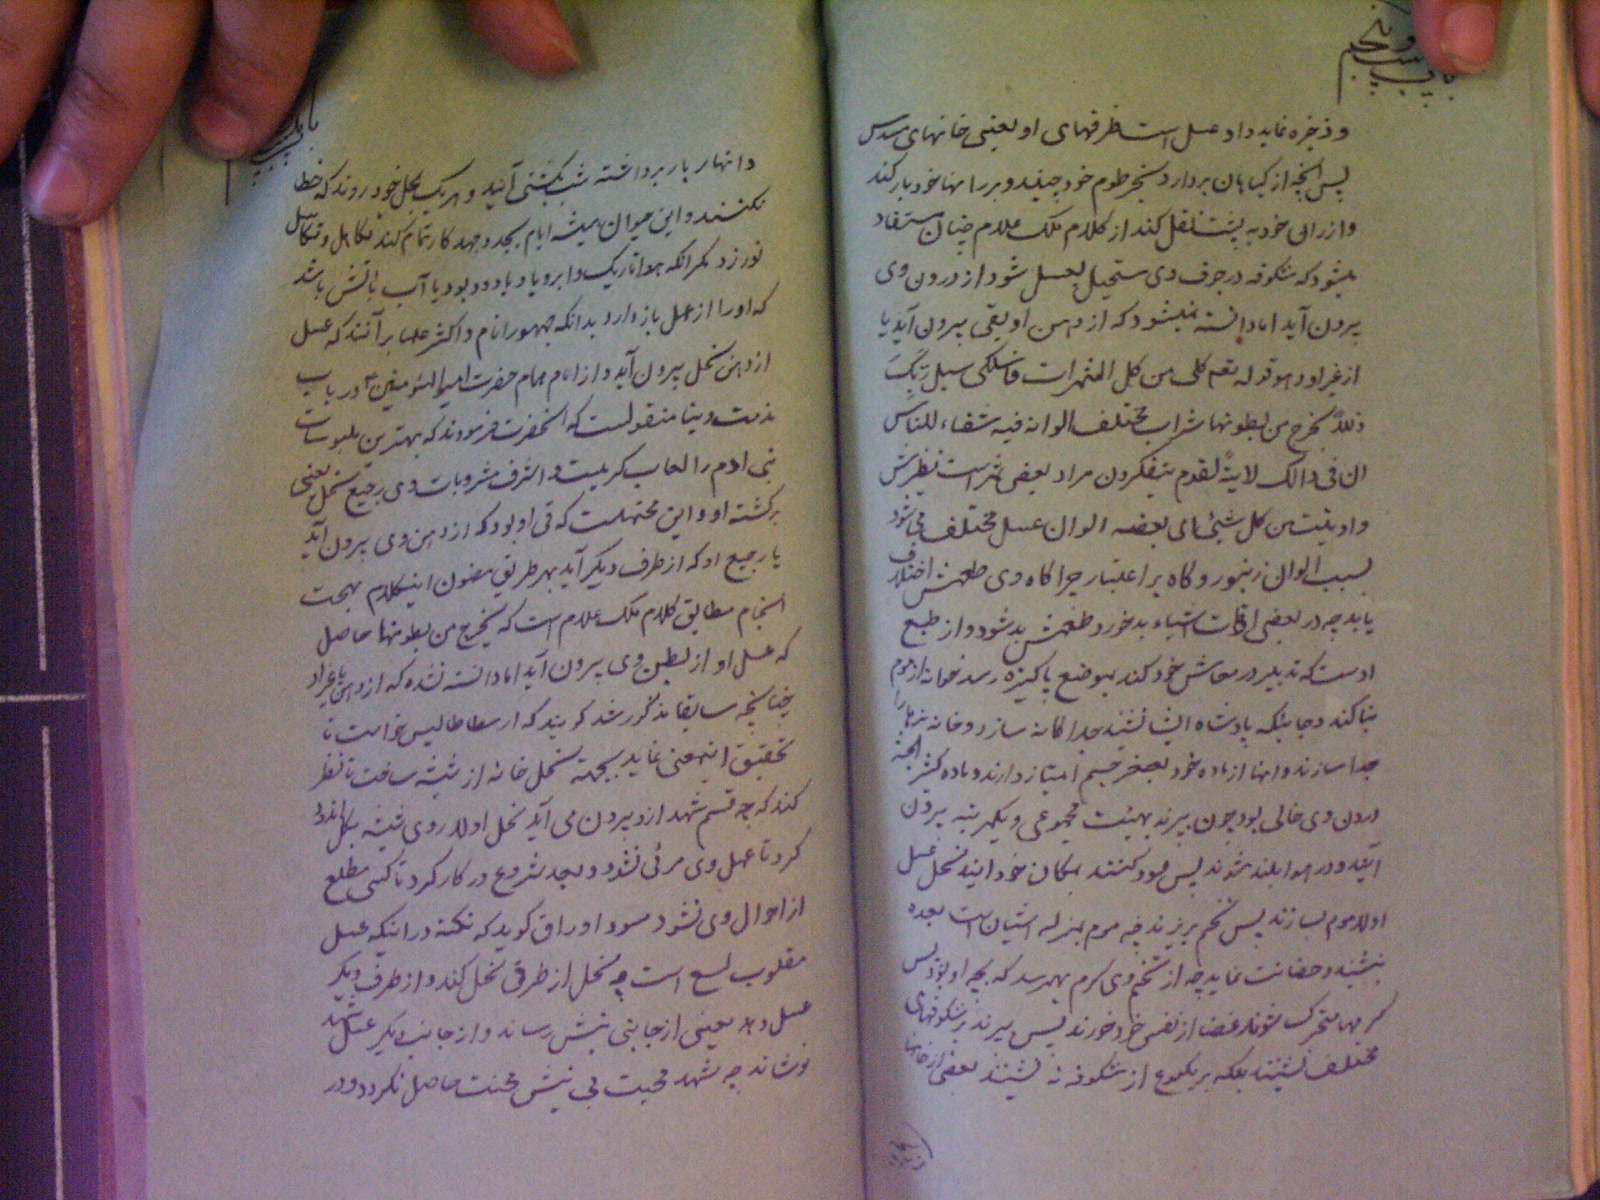 باب بیست و پنجم
و ذخیره نماید و او عسل است ظرفهای او یعنی خانهای مسدس
پس آنچه از کیاهان بردارد بخرطوم خود چیند و بر رانها خود بار کند
و از ران خود به پشت نقل کند از کلام ملک علام چنان مستفاد
میشود که شکوفه در جوف وی مستحیل بعسل شود از درون وی
بیرون آید اما دانسته نمیشود که از دهن او بقی بیرون آید یا
از غیر او و هو قوله تعم کلی من کل الثمرات فاسلکی سبل ربک
ذللا یخرج من بطونها شراب مختلف الوانه فیه شفاء للناس
ان فی ذالک لایة لقوم یتفکرون مراد بعض ثمر است نظیرش
و اوتیت من کل شیٔ ای بعضه الوان عسل مختلف می شود
بسبب الوان زنبور و کاه بر اعتبار چراکاه وی طعمش اختلاف
یابد چه در بعضی اوقات اشیاء بد خورد طعمش بد شود و از طبع
اوست که تدبیر در معاش خود کند بموضع پاکیزه رسد خانه از موم
بنا کند و جائیکه پادشاه ایشان نشیند جدا کانه سازد و خانه نرها را
جدا سازند و اینها از ماده خود بصغر جسم امتیاز دارند و ماده کثیر الجثه
درون وی خالی بود چون بپرند بهیئت مجموعی و یکمرتبه بیرون
آیند و در هوا بلند شوند پس عود کنند بمکان خود آیند نحل عسل
اولا موم بسازند پس تخم بریزند چه موم بمنزله آشیان است بعده
نشیند و حضانت نماید چه از تخم وی کرم بهم رسد که بچه او بود پس
کرمها متحرک شوند غذا از نفس خود خورند پس پرند بر شکوفهای
مختلف نشینند بلکه بر یکنوع از شکوفه نه نشینند بعضی از خانها
باب بیست
دانها را بار برداشته شب بکشتی آیند و هر یک بمحل خود روند که خطا
نکنند و این حیوان همیشه ایام بجد و جهد کار تمام کند تکاهل و تکاسل
نورزد مکر آنکه هوا تاریک و ابر و یا و باد دود بود یا آب یا آتش باشد
که او را از عمل باز دارد بدانکه جمهور انام و اکثر علما بر آنند که عسل
از دهن نحل بیرون آید و از امام همام حضرت امیرالمؤمنین ع در باب
مذمت دنیا منقولست که آنحضرت فرمودند که بهترین ملبوسات
بنی ادم را لعاب کرمیست و اشرف مشروبات وی رجیع نحل یعنی
برکشته او و این محتملست که قی او بود که از دهن وی بیرون آید
یا رجیع او که از طرف دیکر آید بهر طریق مضمون اینکلام بهجت
انجام مطابق کلام ملک علام است که یخرج من بطونها حاصل
که عسل او از بطن وی بیرون آید اما دانسته نشده که از دهن یا غیر او
چنانچه سابقا مذکور شد کویند که ارسطاطالیس خواست تا
تحقیق اینمعنی نماید بجهة نحل خانهٔ از شیشه ساخت تا نظر
کند که چه قسم شهد ازو بیرون می آید نحل اولا روی شیشه بکل اندود
کرد تا عمل وی مرئی نشود و بعد شروع در کار کرد تا کسی مطلع
از احوال وی نشود مسود اوراق کوید که نکته در اینکه عسل
مقلوب لسع است چه نحل از طرفی نحل کند و از طرف دیکر
عسل دهد یعنی از جانبی نیش رساند و از جانب دیکر عسل شهد
نوشاند چه شهد محبت بی نیش محنت حاصل نکردد و در